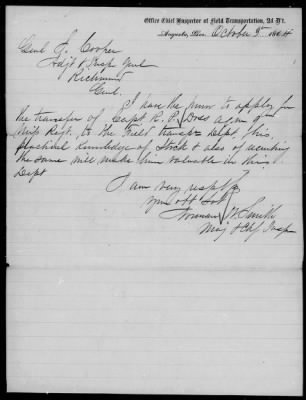 Office Chief Inspector of Field Transportation, 2d Dt.
Augusta, Geo. October 5 1864
Genl S. Cooper
Adjt & Insp Genl
Richmond
Genl.
I have the honor to apply for
the transfer of Capt R. P.
Miss Regt. to the Field transp Dept, his
practical knowledge of Stock & also of
the same will make him valuable in this
Dept
I am very respty
Your obt Svt
Norman W. Smith
Maj & Chf Insp